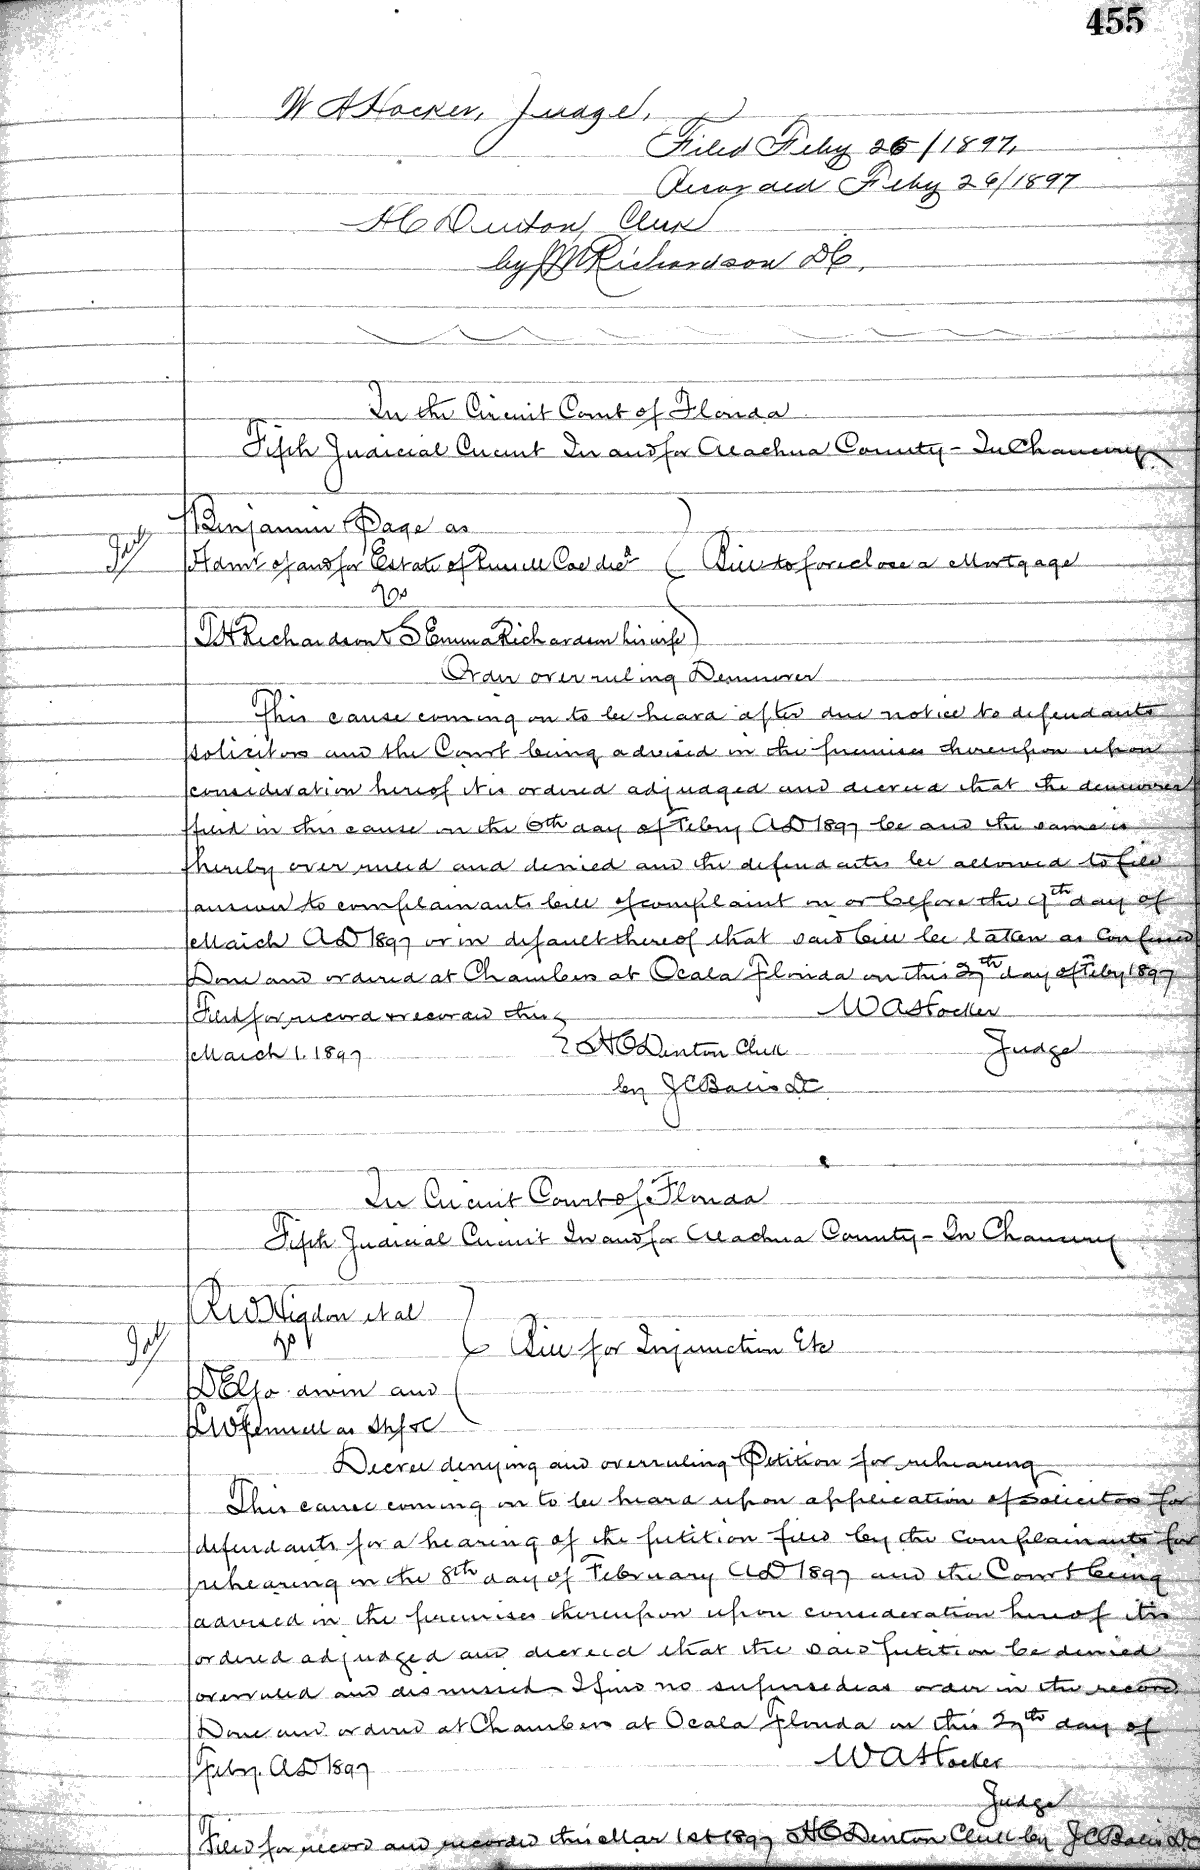 455
W A Hocker, Judge,
Filed Feby 26/1897,
Recorded Feby 26/1897
H C Denton, Clerk
by Richardson D C,
In the Circuit Court of Florida
Fifth Judicial Circuit In and for Alachua County - In Chancery
Benjamin Page as
Admr of and for Estate of Russell Coe decd
Bill to foreclose a Mortgage
vs
T H Richardson & S Emma Richardson his wife
Order over ruling Demurrer
This cause coming on to be heard after due notice to defendants
solicitors and the Court being advised in the premises thereupon upon
consideration hereof it is ordered adjudged and decreed that the demurrer
filed in this cause on the 6th day of Febry AD 1897 be and the same is
hereby over ruled and denied and the defendants be allowed to file
answer to complainants bill of complaint on or before the 9th day of
March AD 1897 or in default thereof that said bill be taken as confessed
Done and ordered at Chambers at Ocala Florida on this 27th day of Feby 1897
Filed for record & recorded this
W A Hocker
March 1. 1897
H C Denton Clerk
Judge
by J C D C
In Circuit Court of Florida
Fifth Judicial Circuit In and for Alachua County - In Chancery
R W Higdon et al
vs
Bill for Injunction Etc
D E Godwin and
L W Fennell as Shf &C
Decree denying and overruling Petition for rehearing
This cause coming on to be heard upon application of solicitors for
defendants for a hearing of the petition filed by the complainants for
rehearing on the 8th day of February AD 1897 and the Court being
advised in the premises thereupon upon consideration hereof it is
ordered adjudged and decreed that the said petition be denied
overruled and dismissed I find no supersedeas order in the record
Done and ordered at Chambers at Ocala Florida on this 27th day of
Feby. AD 1897
W A Hocker
Judge
Filed for record and recorded this Mar 1st 1897 H C Denton Clerk by J C D C